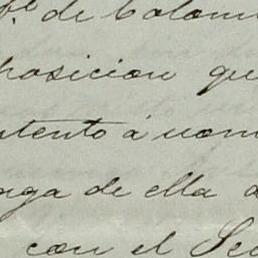 de Colom
posicion que
intento á nom
nga de ella a
con el Sec